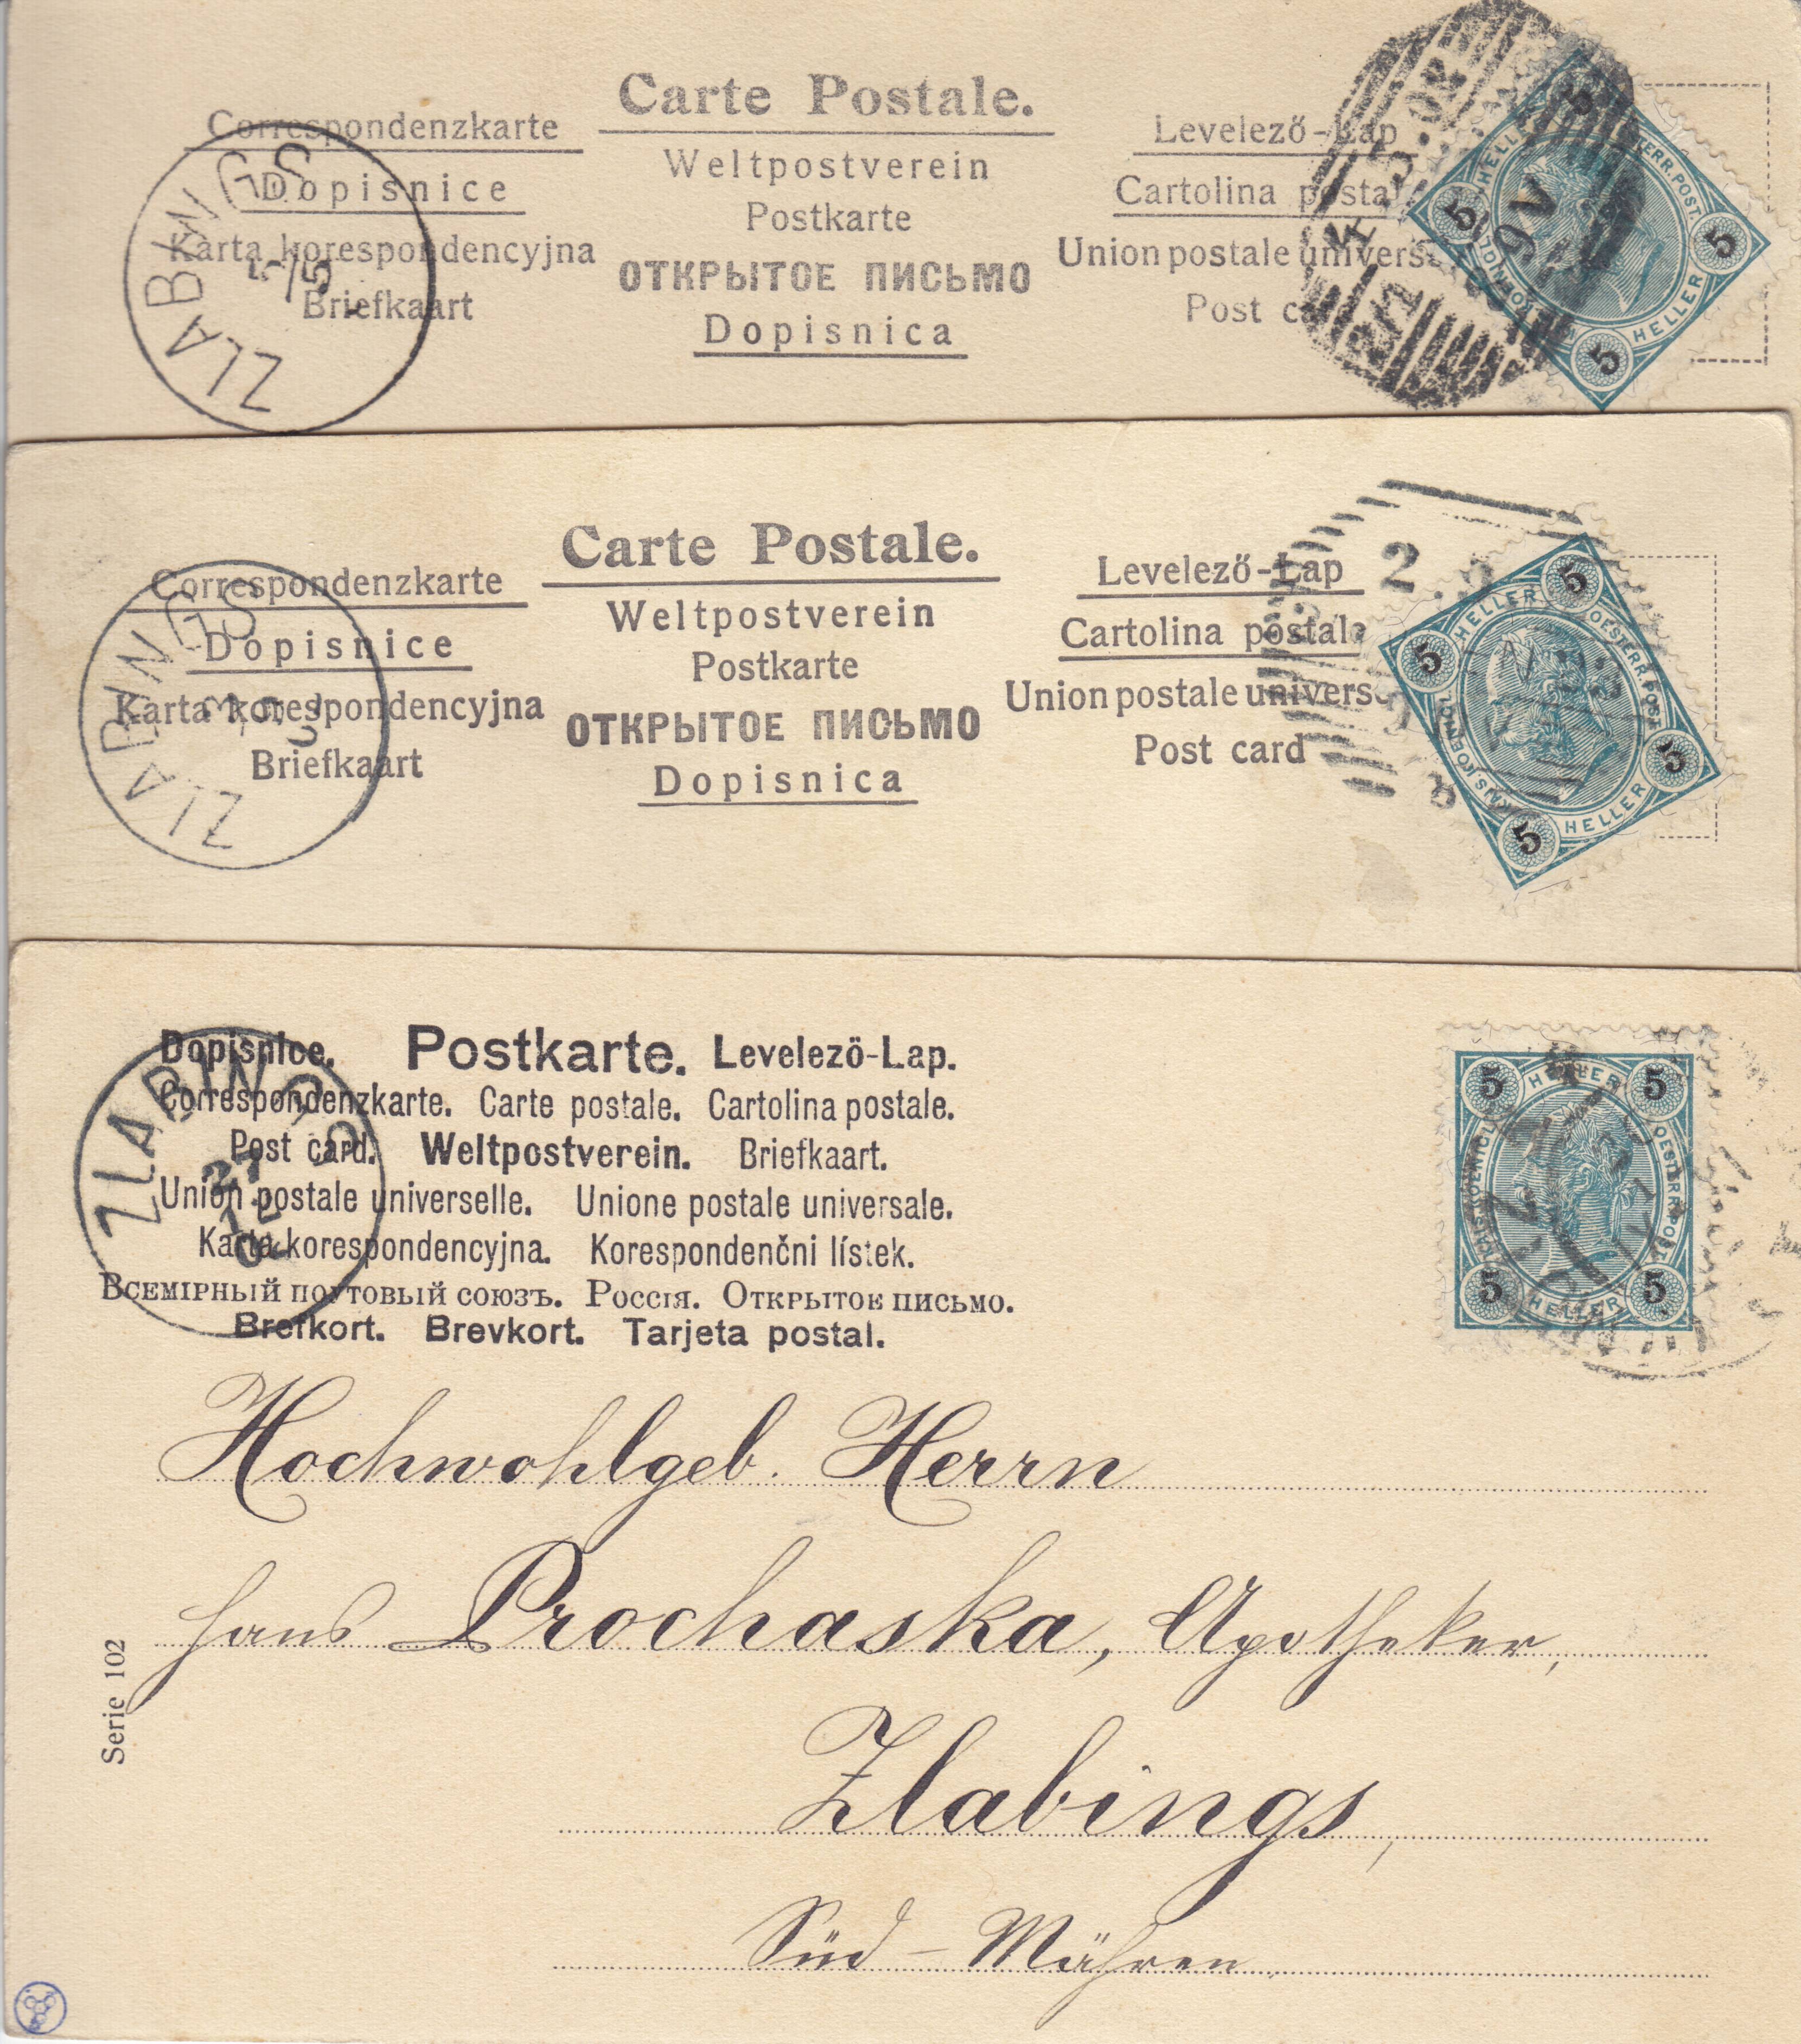 Carte Postale.
Correspondenzkarte
Dopisnice
Karta korespondencyjna
Briefkaart
Weltpostverein
Postkarte
ОТКРЫТОЕ ПИСЬМО
Dopisnica
Levelező-Lap
Cartolina postal
Union postale univers
Post ca
ZLABINGS
5/5
4.5.02
9V
5 HELLER 5 OESTERR.POST. 5 HELLER 5
Carte Postale.
Correspondenzkarte
Dopisnice
Karta korespondencyjna
Briefkaart
Weltpostverein
Postkarte
ОТКРЫТОЕ ПИСЬМО
Dopisnica
Levelező-Lap
Cartolina postale
Union postale univers
Post card
ZLABINGS
2
5 HELLER 5 OESTERR.POST. 5 HELLER 5 KAIS.KOENIGL.
Dopisnice. Postkarte. Levelező-Lap.
Correspondenzkarte. Carte postale. Cartolina postale.
Post card. Weltpostverein. Briefkaart.
Union postale universelle. Unione postale universale.
Karta korespondencyjna. Korespondenčni lístek.
Всемірный почтовый союзъ. Россія. Открытое письмо.
Brefkort. Brevkort. Tarjeta postal.
ZLABINGS
27
5 HELLER 5 OESTERR.POST. 5 HELLER 5 KAIS.KOENIGL.
Hochwohlgeb. Herrn
Hans Prochaska, Apotheker,
Zlabings,
Süd-Mähren.
Serie 102